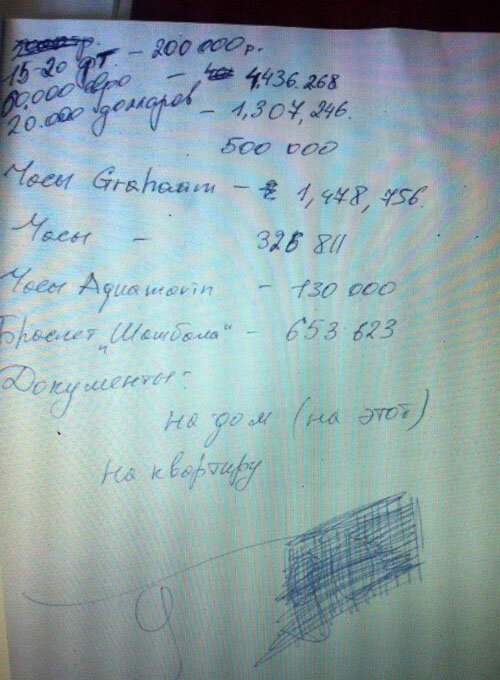 15-20 фт. - 200 000 р.
60.000 евро - 4,436.268
20.000 долларов - 1,307,246.
500 000
Часы Graham - 1,478,756.
Часы - 326 811
Часы Aquamarin - 130 000
Браслет „Шамбала" - 653 623
Документы:
на дом (на этот)
на квартиру